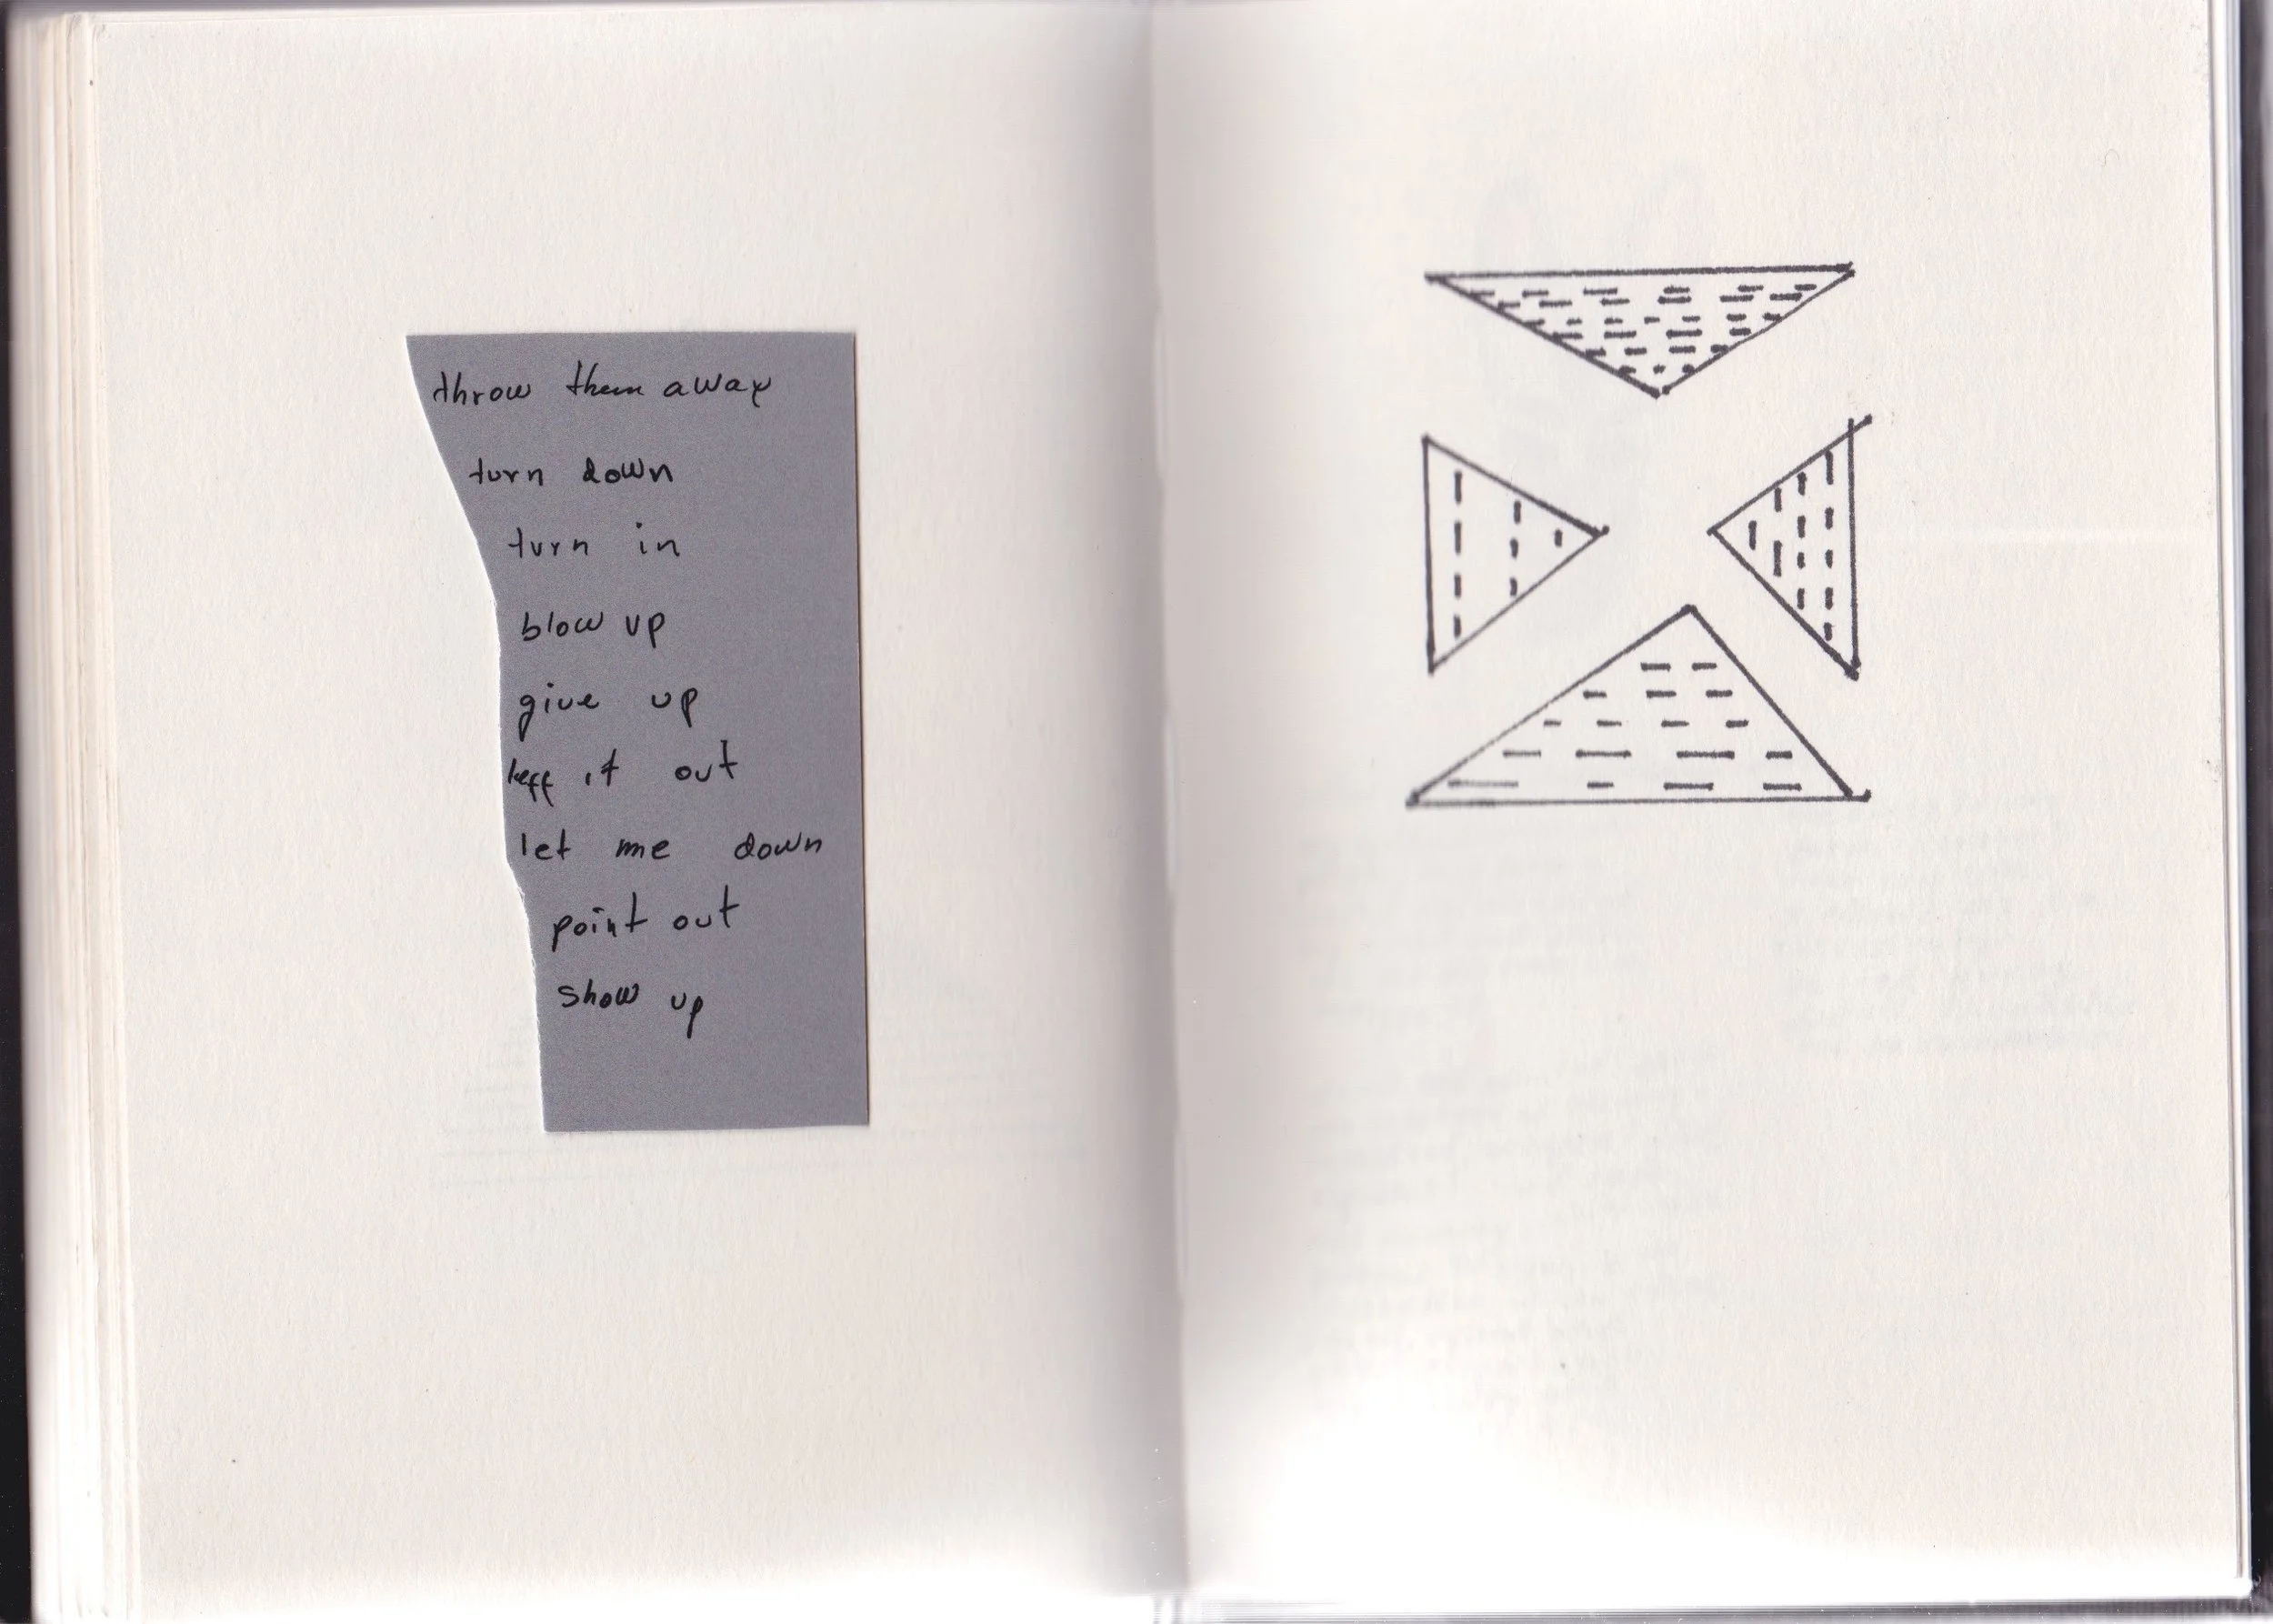 throw them away
turn down
turn in
blow up
give up
it out
let me down
point out
show up